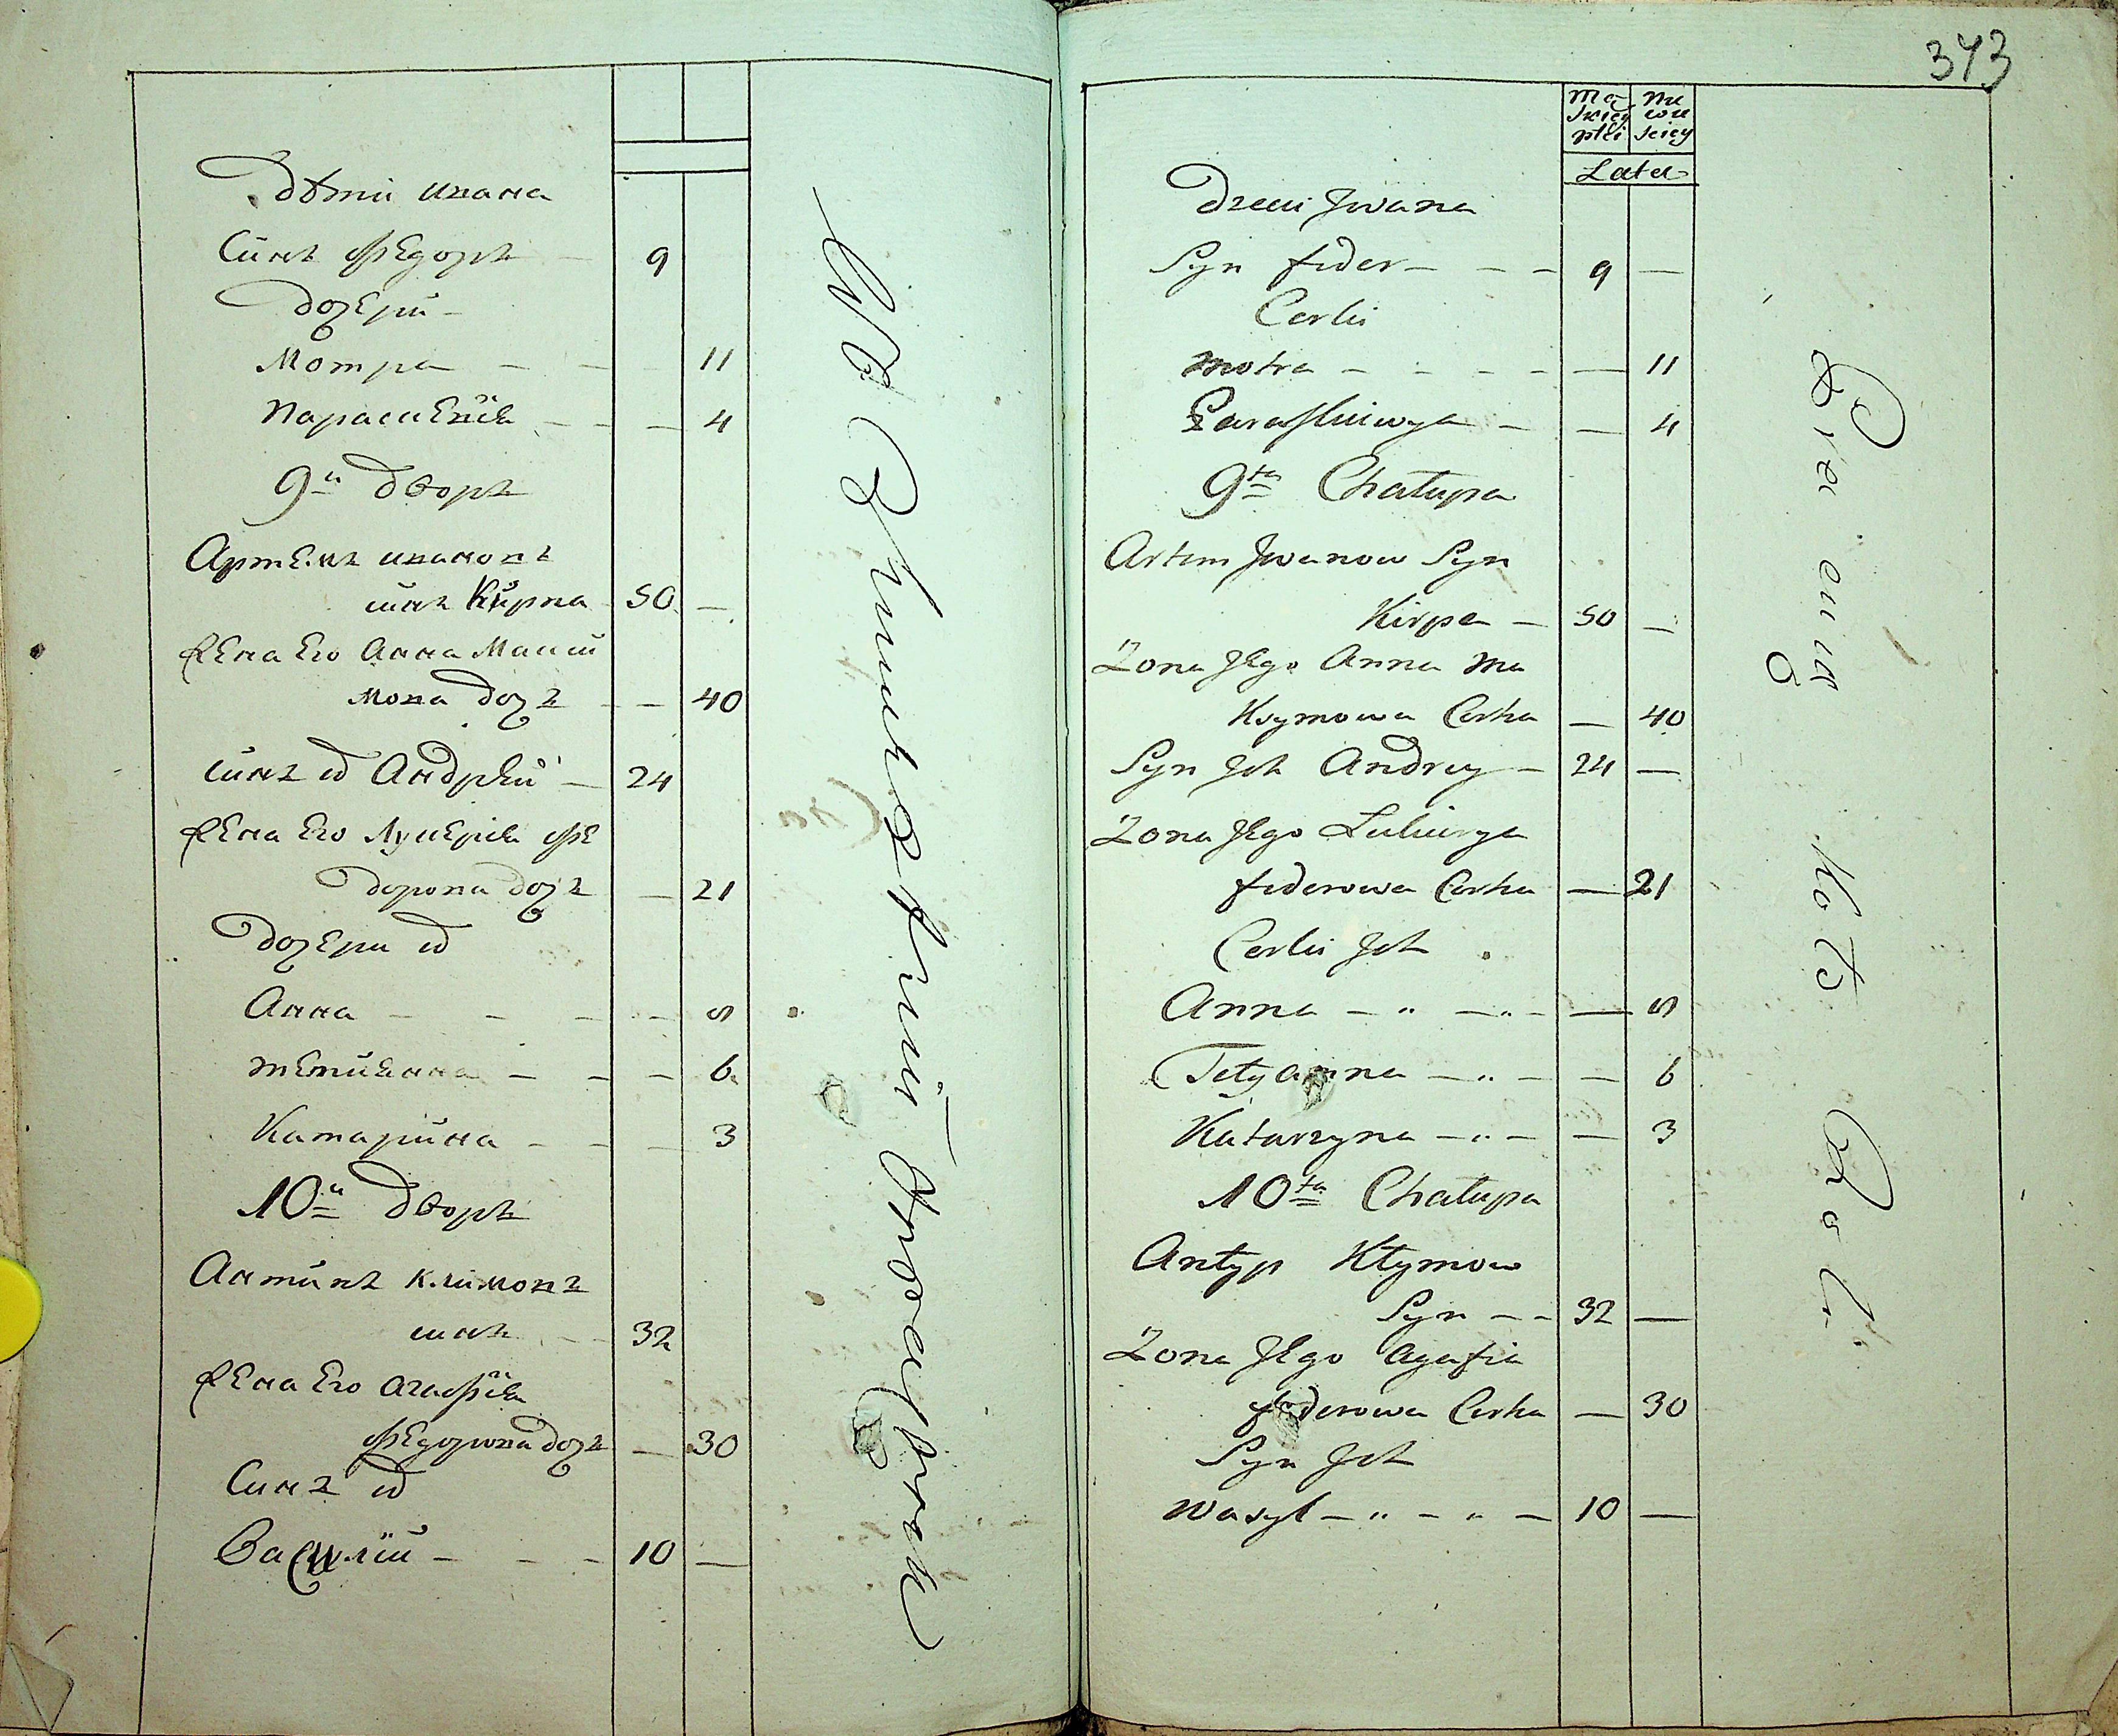 Дѣти ивана
Синъ ѳедоръ — 9
Дочери —
Мотра — — 11
Параскевія — — 4
9й Дворъ
Артемъ ивановъ
синъ Кирпа 50 —
жена Его Анна Макси
мова дочъ — 40
синъ их Андрѣй — 24
жена Его Лукеріѧ ѳе
дорова дочъ — 21
Дочери их
Анна — — —
тетиѧнна — — — 6
Катарина — — 3
10й Дворъ
Антипъ климовъ
синъ — 32
жена Его агафіѧ
ѳедорова дочъ — 30
Синъ их
Василій — — — 10 —
373
Mę
skiey
płci
Nie
wie
sciey
Lata
Dzeci Jwana
Syn fedor — — — 9 —
Corki
Motra — — — — — 11
Paraskiwya — — 4
9ta Chałupa
Artem Jwanow Syn
Kirpa — 50 —
Zona Jego Anna Ma
Ksymowa Corka — 40
Syn Jch Andrey — 24 —
Zona Jego Lukierya
federowa Corka — 21
Corki Jch
Anna — " — " — —
Tetyanna — " — — 6
Katarzyna — " — — 3
10ta Chałupa
Antyp Kłymow
Syn — — 32 —
Zona Jego Agafia
federowa Corka — 30
Syn Jch
Wasyl — " — " — 10 —